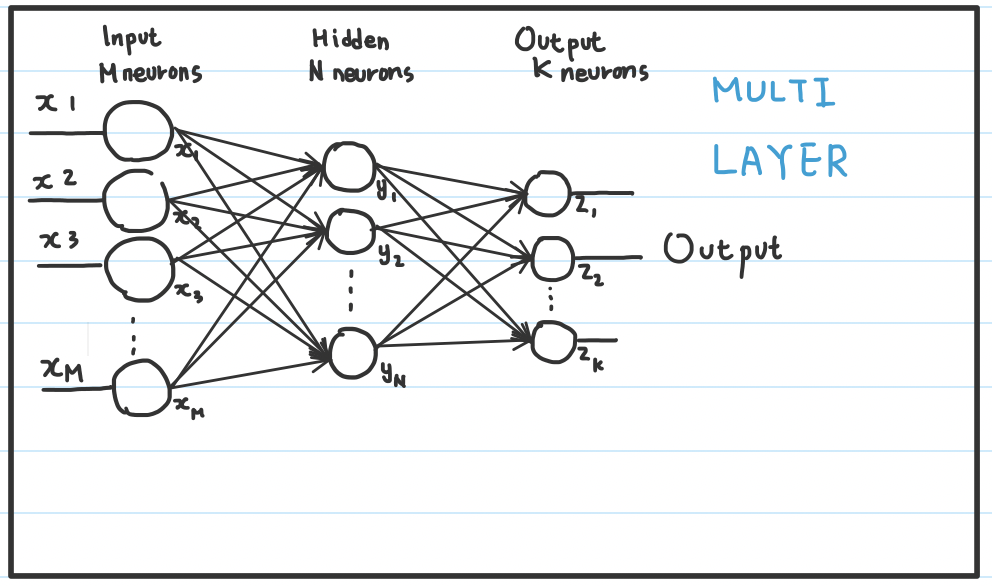 Input
M neurons
Hidden
N neurons
Output
K neurons
MULTI
LAYER
x1
x1
x2
x2
x3
x3
xM
xM
y1
y2
yN
z1
z2
zK
Output